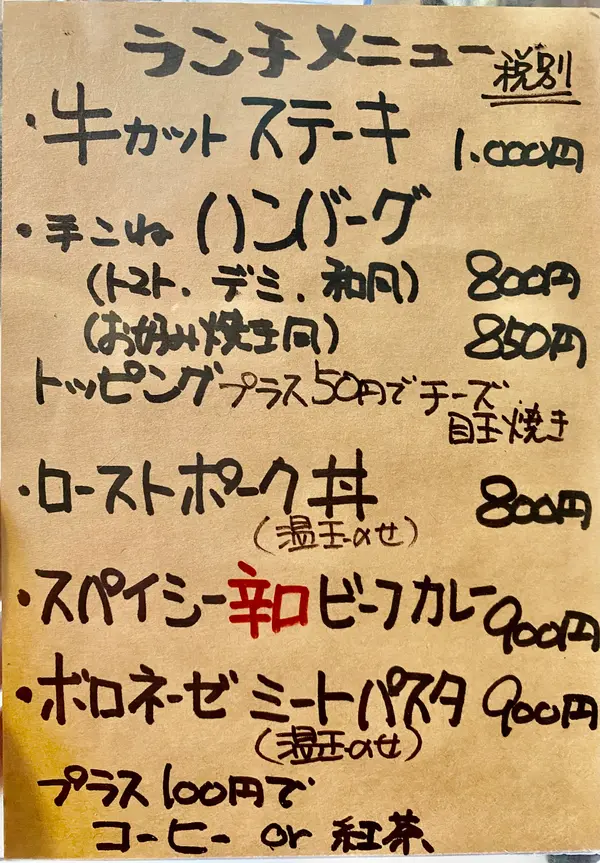 ランチメニュー 税別
・牛カットステーキ 1.000円
・手こねハンバーグ
(トマト、デミ、和風) 800円
(お好み焼き風) 850円
トッピングプラス50円でチーズ
目玉焼き
・ローストポーク丼 800円
(温玉のせ)
・スパイシー辛口ビーフカレー 900円
・ボロネーゼミートパスタ 900円
(温玉のせ)
プラス100円で
コーヒー or 紅茶